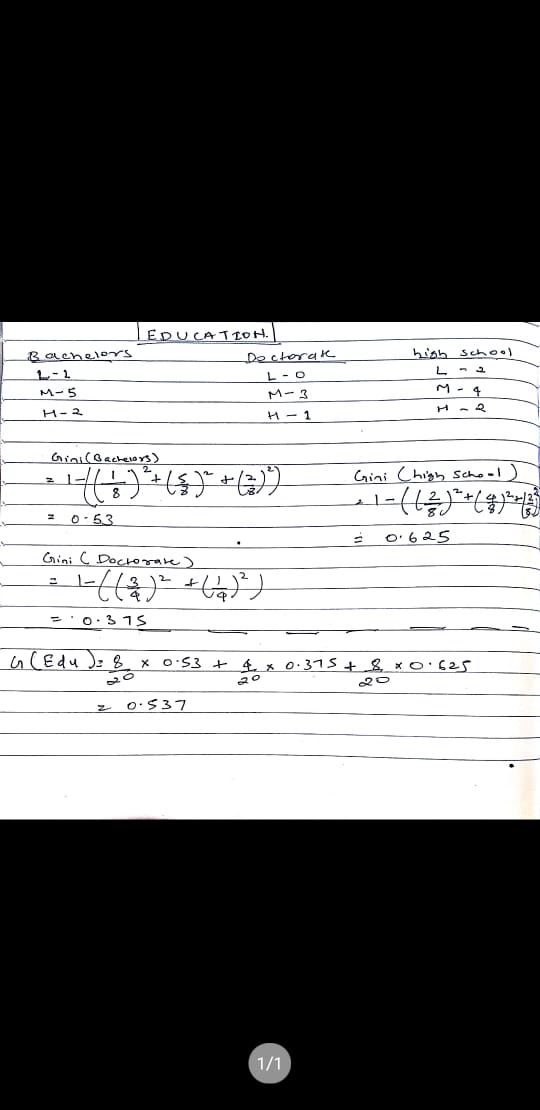 EDUCATION.
Bachelors Doctorate high school
L-1 L-0 L-2
M-5 M-3 M-4
H-2 H-1 H-2
Gini (Bachelors)
= 1-((1/8)²+(5/8)²+(2/8)²)
= 0.53
Gini (high school)
= 1-((2/8)²+(4/8)²+(2/8)²
= 0.625
Gini (Doctorate)
= 1-((3/4)²+(1/4)²)
= 0.375
G(Edu)= 8/20 × 0.53 + 4/20 × 0.375 + 8/20 × 0.625
= 0.537
1/1